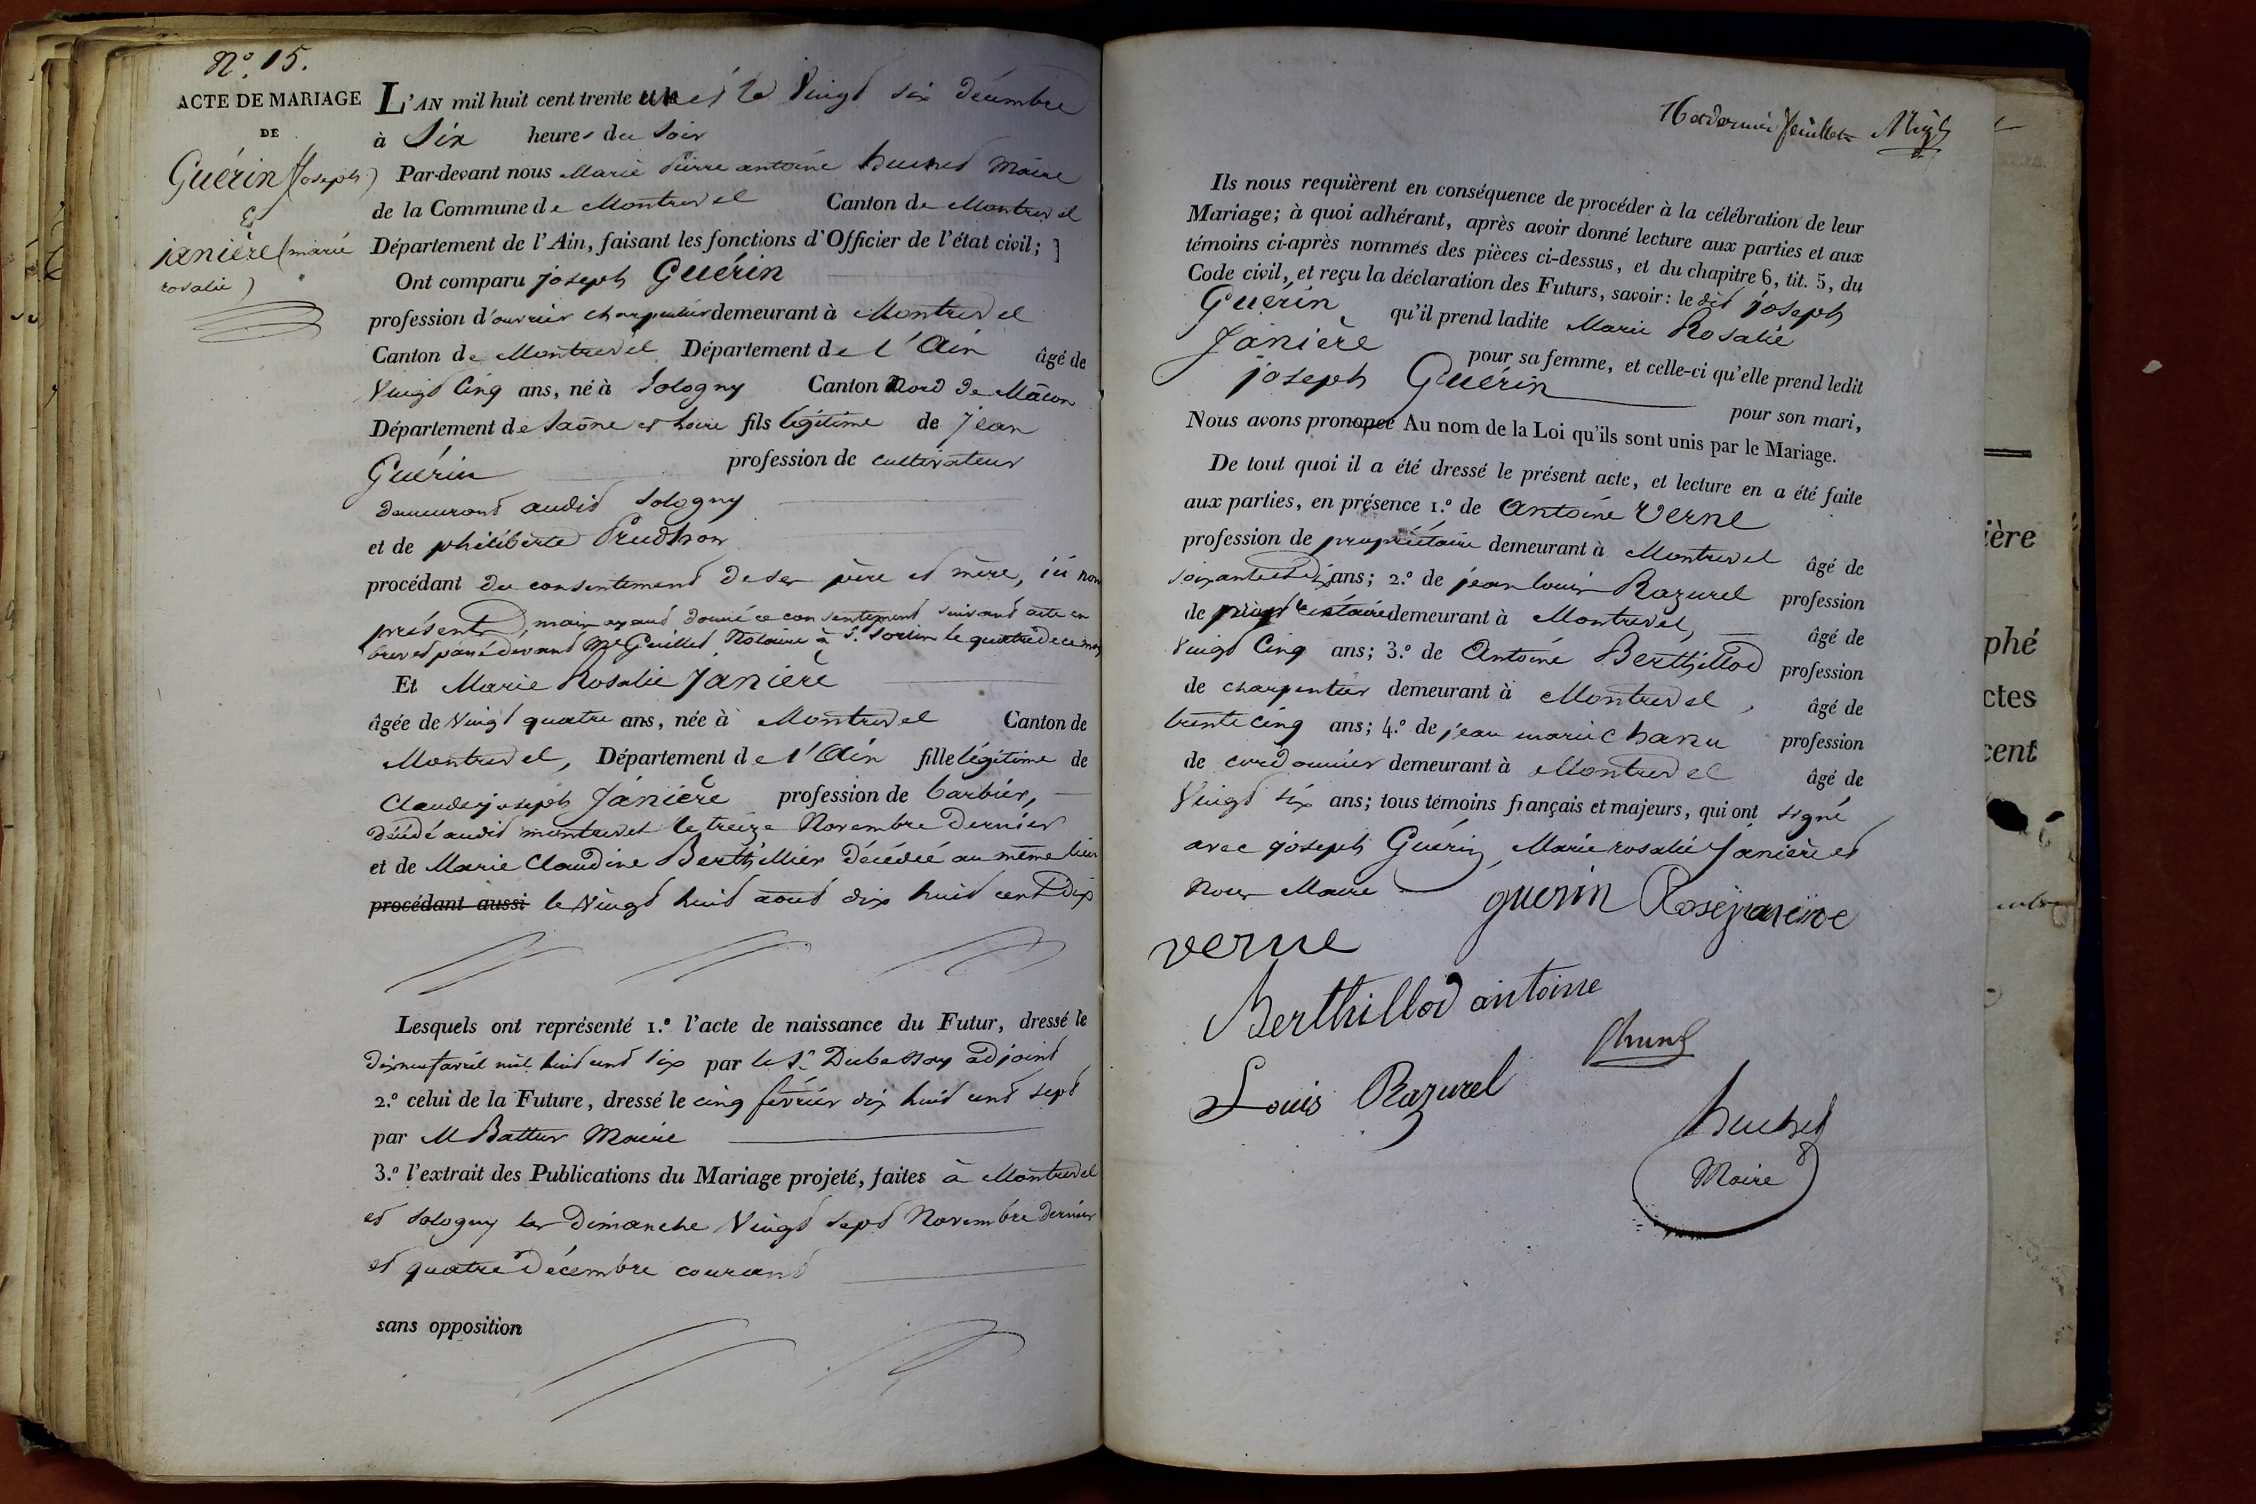 N.º 15.
ACTE DE MARIAGE
DE
Guérin (joseph)
Et
janière (marie
rosalie)
L'AN mil huit cent trente un et le Vingt six décembre
à Six heures du Soir
Par-devant nous Marie Pierre antoine huchet Maire
de la Commune de Montrevel Canton de Montrevel
Département de l'Ain, faisant les fonctions d'Officier de l'état civil;
Ont comparu joseph Guérin
profession d'ouvrier charpentier demeurant à Montrevel
Canton de Montrevel Département de l'Ain âgé de
Vingt Cinq ans, né à Sologny Canton Nord de Mâcon
Département de Saône et Loire fils légitime de Jean
Guérin profession de cultivateur
demeurant audit Sologny
et de philiberte Prudhon
procédant du consentement de ses père et mère, ici non
présents, mais ayant donné ce consentement suivant acte en
brevet passé devant Me Guillet Notaire à St. Sorlin le quatre de ce mois
Et Marie Rosalie Janière
âgée de Vingt quatre ans, née à Montrevel Canton de
Montrevel, Département de l'Ain fille légitime de
Claude joseph Janière profession de barbier,
décédé audit montrevel le treize Novembre dernier
et de Marie Claudine Berthillier décédée au même lieu
procédant aussi le Vingt huit août dix huit cent dix
Lesquels ont représenté 1.º l'acte de naissance du Futur, dressé le
dix neuf avril mil huit cent six par le Sr. Dubessoy adjoint
2.º celui de la Future, dressé le cinq février dix huit cent sept
par M Battur Maire
3.º l'extrait des Publications du Mariage projeté, faites à Montrevel
et Sologny les Dimanche Vingt Sept Novembre dernier
et quatre Décembre courant
sans opposition
16 et dernier feuillet
Ils nous requièrent en conséquence de procéder à la célébration de leur
Mariage; à quoi adhérant, après avoir donné lecture aux parties et aux
témoins ci-après nommés des pièces ci-dessus, et du chapitre 6, tit. 5, du
Code civil, et reçu la déclaration des Futurs, savoir: le dit joseph
Guérin, qu'il prend ladite Marie Rosalie
Janière pour sa femme, et celle-ci qu'elle prend ledit
joseph Guérin pour son mari,
Nous avons prononcé Au nom de la Loi qu'ils sont unis par le Mariage.
De tout quoi il a été dressé le présent acte, et lecture en a été faite
aux parties, en présence 1.º de Antoine Verne
profession de propriétaire demeurant à Montrevel âgé de
soixante et dix ans; 2.º de jean louis Razurel profession
de propriétaire demeurant à Montrevel, âgé de
Vingt Cinq ans; 3.º de Antoine Berthillod profession
de charpentier demeurant à Montrevel, âgé de
trente cinq ans; 4.º de jean marie Chanu profession
de cordonnier demeurant à Montrevel âgé de
Vingt six ans; tous témoins français et majeurs, qui ont signé
avec joseph Guérin, Marie rosalie Janière et
Nous Maire
guerin Rose janiére
verne
Berthillod antoine
Louis Razurel
huchet
Maire
ière
phé
ctes
cent